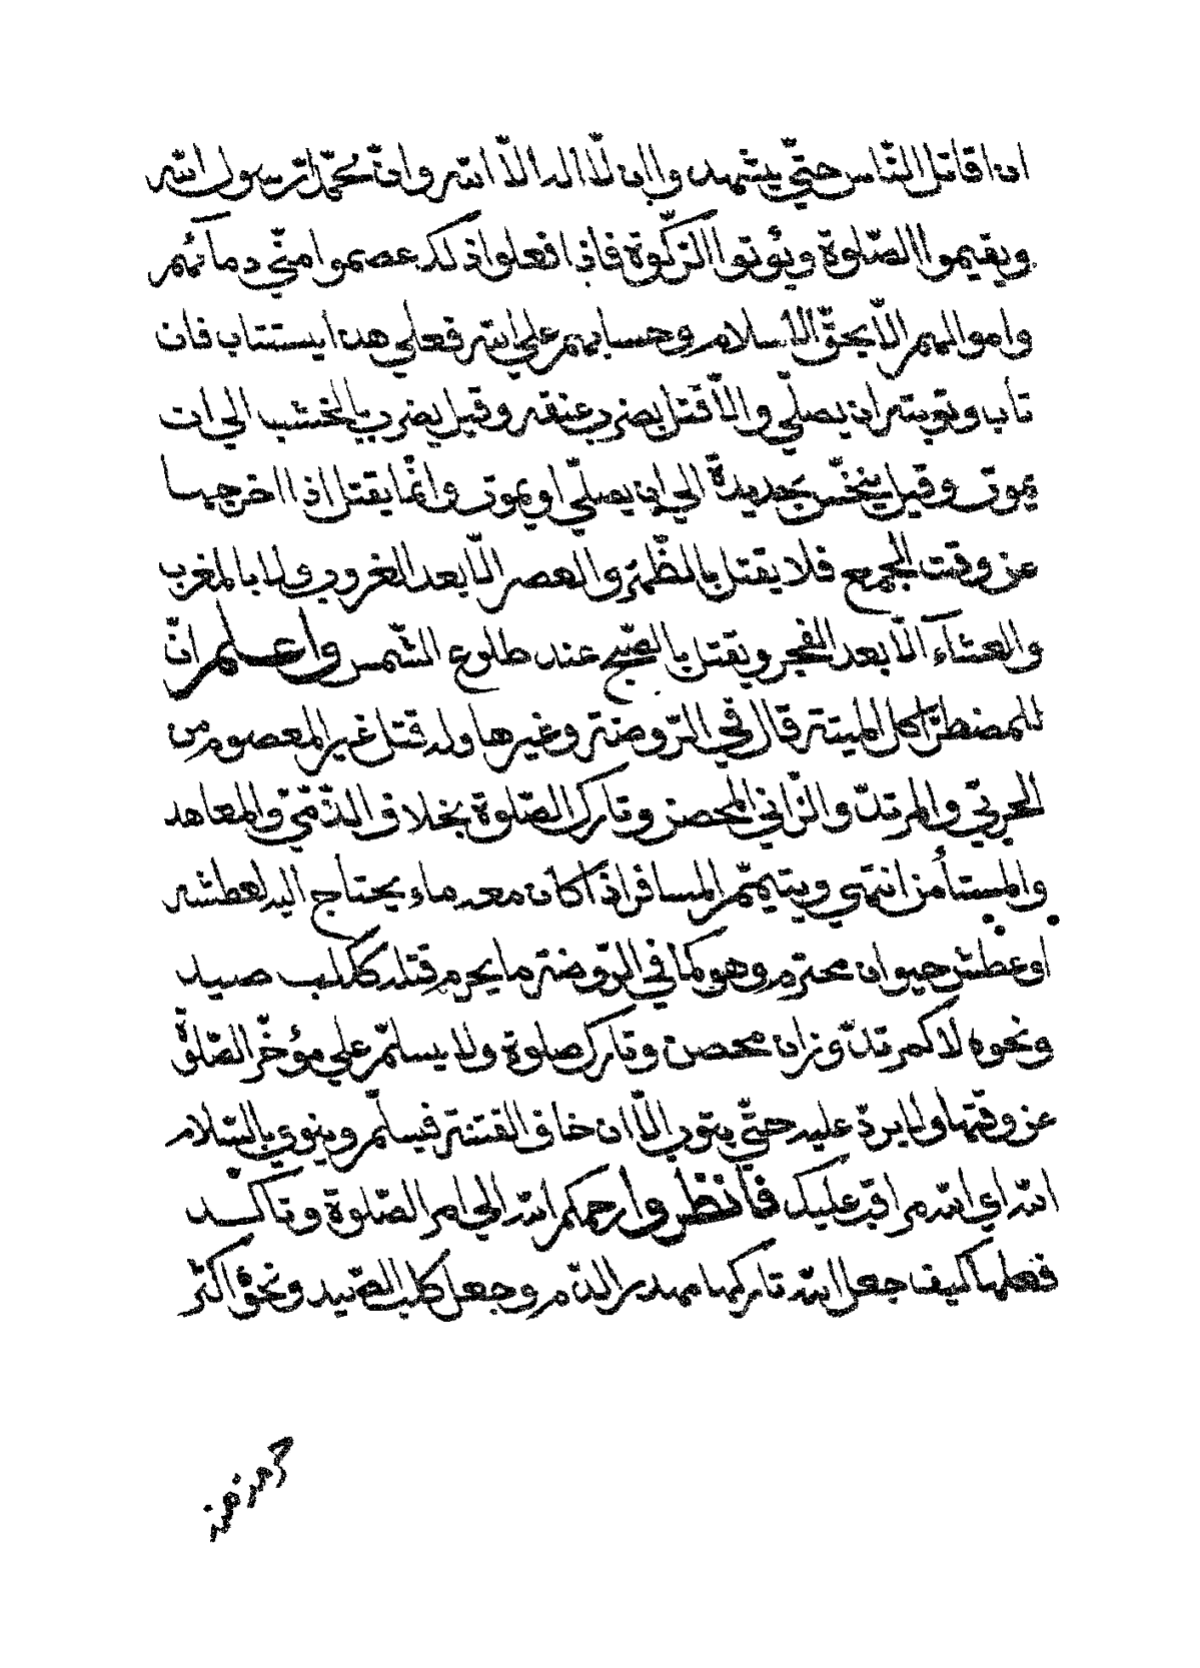 ان اقاتل النّاس حتّي يشهدوا ان لّا اله الّا الله وانّ محمّدا رسول الله
ويقيموا الصّلوة ويؤتوا الزّكوة فاذا فعلوا ذلك عصموا منّي دمائهم
واموالهم الّا بحقّ الاسلام وحسابهم علي الله فعلي هذا يستتاب فان
تاب وتوبته ان يصلّي والّا قتل بضرب عنقه وقيل يضرب بالخشب الي ان
يموت وقيل ينخس بحديدة الي ان يصلّي او يموت وانّما يقتل اذا اخرجها
عن وقت الجمع فلا يقتل بالظّهر والعصر الّا بعد الغروب ولا بالمغرب
والعشآء الّا بعد الفجر ويقتل بالصّبح عند طلوع الشّمس واعلم انّ
للمضطرّ اكل الميتة قال في الرّوضة وغيرها وله قتل غير المعصوم من
الحربيّ والمرتدّ والزّاني المحصن وتارك الصّلوة بخلاف الذّمّيّ والمعاهد
والمستأمن انتهي ويتيمّم المسافر اذا كان معه ماء يحتاج اليه لعطشه
او عطش حيوان محترم وهو كما في الرّوضة ما يحرم قتله ككلب صيد
ونحوه لا كمرتدّ وزان محصن وتارك صلوة ولا يسلّم علي مؤخّر الصّلوة
عن وقتها ولا يردّ عليه حتّي يتوب الّا ان خاف الفتنة فيسلّم وينوي بالسّلام
الله اي الله مراقب عليك فانظروا رحمكم الله الي امر الصّلوة وتاكد
فعلها كيف جعل الله تاركها مهدر الدّم وجعل كلب الصّيد ونحوه اكثر
حرمة منه